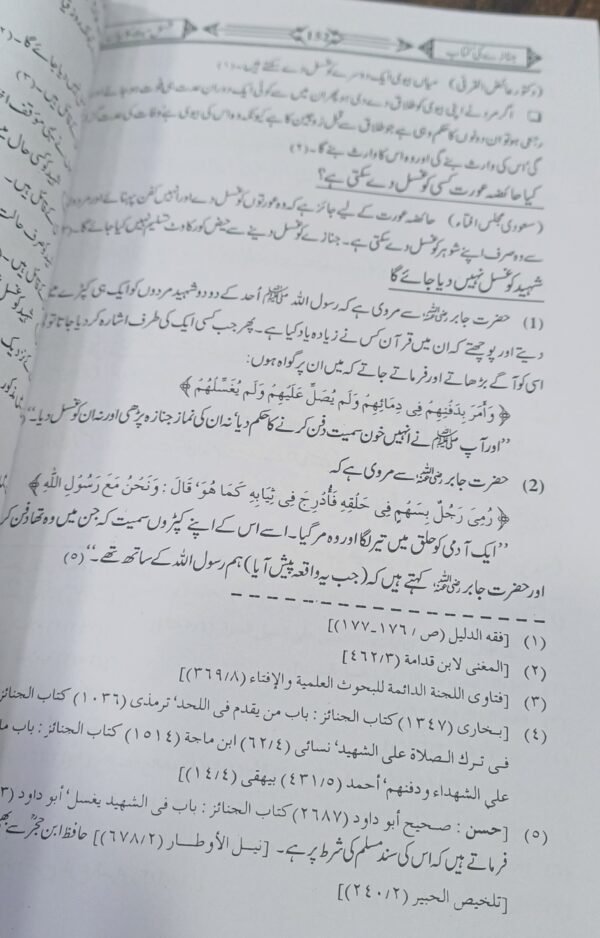 جنازے کی کتاب
(دکتور عائض القرنی) میاں بیوی ایک دوسرے کو غسل دے سکتے ہیں۔(۱)
اگر مرد نے اپنی بیوی کو طلاق دے دی ہو پھر ان میں سے کوئی ایک دوران عدت ہی فوت ہو جائے اور
رجعی ہو تو ان دونوں کا حکم وہی ہے جو طلاق سے قبل زوجین کا ہے کیونکہ وہ اس کی بیوی ہے وفات کی عدت
گی اُس کی وارث بنے گی اور وہ اس کا وارث بنے گا۔(۲)
کیا حائضہ عورت کسی کو غسل دے سکتی ہے؟
(سعودی مجلس افتاء) حائضہ عورت کے لیے جائز ہے کہ وہ عورتوں کو غسل دے اور انہیں کفن پہنائے اور مردوں
سے وہ صرف اپنے شوہر کو غسل دے سکتی ہے۔ جنازے کو غسل دینے سے حیض کو رکاوٹ تسلیم نہیں کیا جائے گا۔(۳)
شہید کو غسل نہیں دیا جائے گا
(1) حضرت جابر رضی اللہ عنہ سے مروی ہے کہ رسول اللہ ﷺ اُحد کے دو دو شہید مردوں کو ایک ہی کپڑے میں
دیتے اور پوچھتے کہ ان میں قرآن کس نے زیادہ یاد کیا ہے۔ پھر جب کسی ایک کی طرف اشارہ کر دیا جاتا تو
اسی کو آگے بڑھاتے اور فرماتے جاتے کہ میں ان پر گواہ ہوں:
﴿ وَأَمَرَ بِدَفْنِهِمْ فِي دِمَائِهِمْ وَلَمْ يُصَلِّ عَلَيْهِمْ وَلَمْ يُغَسِّلْهُمْ ﴾
”اور آپ ﷺ نے انہیں خون سمیت دفن کرنے کا حکم دیا‘ نہ ان کی نماز جنازہ پڑھی اور نہ ان کو غسل دیا۔“
(2) حضرت جابر رضی اللہ عنہ سے مروی ہے کہ
﴿ رُمِيَ رَجُلٌ بِسَهْمٍ فِي حَلْقِهِ فَأُدْرِجَ فِي ثِيَابِهِ كَمَا هُوَ‘ قَالَ : وَنَحْنُ مَعَ رَسُولِ اللّٰهِ ﴾
”ایک آدمی کو حلق میں تیر لگا اور وہ مر گیا۔ اسے اس کے اپنے کپڑوں سمیت کہ جن میں وہ تھا دفن کر
اور حضرت جابر رضی اللہ عنہ کہتے ہیں کہ (جب یہ واقعہ پیش آیا) ہم رسول اللہ کے ساتھ تھے۔“ (۵)
(۱) [فقه الدليل (ص / ۱۷۶۔۱۷۷)]
(۲) [المغنى لابن قدامة (۴۶۲/۳)]
(۳) [فتاوى اللجنة الدائمة للبحوث العلمية والإفتاء (۳۶۹/۸)]
(۴) [بخارى (۱۳۴۷) كتاب الجنائز : باب من يقدم فى اللحد‘ ترمذى (۱۰۳۶) كتاب الجنائز
فى ترك الصلاة على الشهيد‘ نسائى (۶۲/۴) ابن ماجة (۱۵۱۴) كتاب الجنائز : باب ما
على الشهداء ودفنهم‘ أحمد (۴۳۱/۵) بيهقى (۱۴/۴)]
(۵) [حسن : صحيح أبو داود (۲۶۸۷) كتاب الجنائز : باب فى الشهيد يغسل‘ أبو داود
فرماتے ہیں کہ اس کی سند مسلم کی شرط پر ہے۔ [نيل الأوطار (۶۷۸/۲)] حافظ ابن حجرؒ نے بھی
[تلخيص الحبير (۲۴۰/۲)]